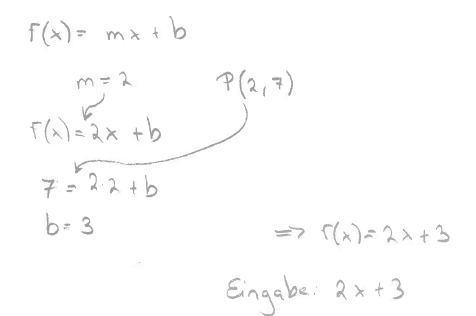 f(x) = mx + b
m = 2
P(2,7)
f(x) = 2x + b
7 = 2·2 + b
b = 3
=> f(x) = 2x + 3
Eingabe: 2x + 3